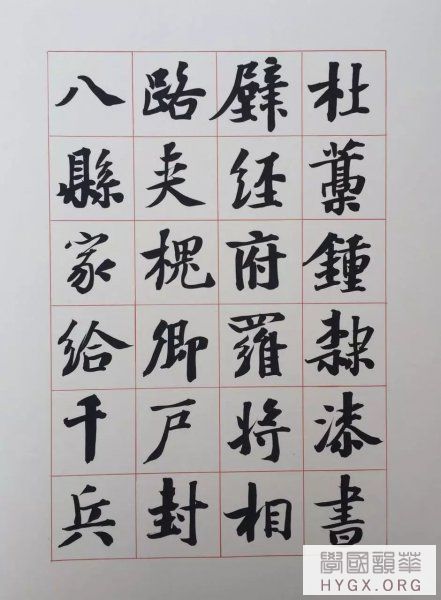 杜藁鍾隸漆書
壁經府羅將相
路夾槐卿戶封
八縣家給千兵
華韻國學
HYGX.ORG